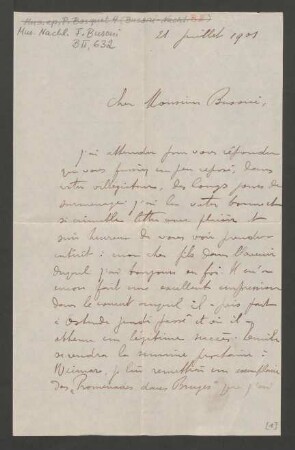 Mus. ep. P. Bosquet 4 (Busoni-Nachl. B II)
Mus. Nachl. F. Busoni
B II, 632
21 juillet 1901
Cher Monsieur Busoni,
J'ai attendu pour vous répondre
que vous fussiez un peu reposé, dans
votre villégiature, des longs jours de
surmenage; j'ai lu votre bonne et
si aimable lettre avec plaisir et
suis heureux de vous voir prendre
intérêt à mon cher fils dans l'avenir
duquel j'ai toujours eu foi. Il m'a
encore fait une excellente impression
dans le concert auquel il a pris part
à Ostende jeudi passé et où il a
obtenu un légitime succès. Émile
se rendra la semaine prochaine à
Weimar, je lui remettrai un exemplaire
des „Promenades dans Bruges" que j'ai
[1]